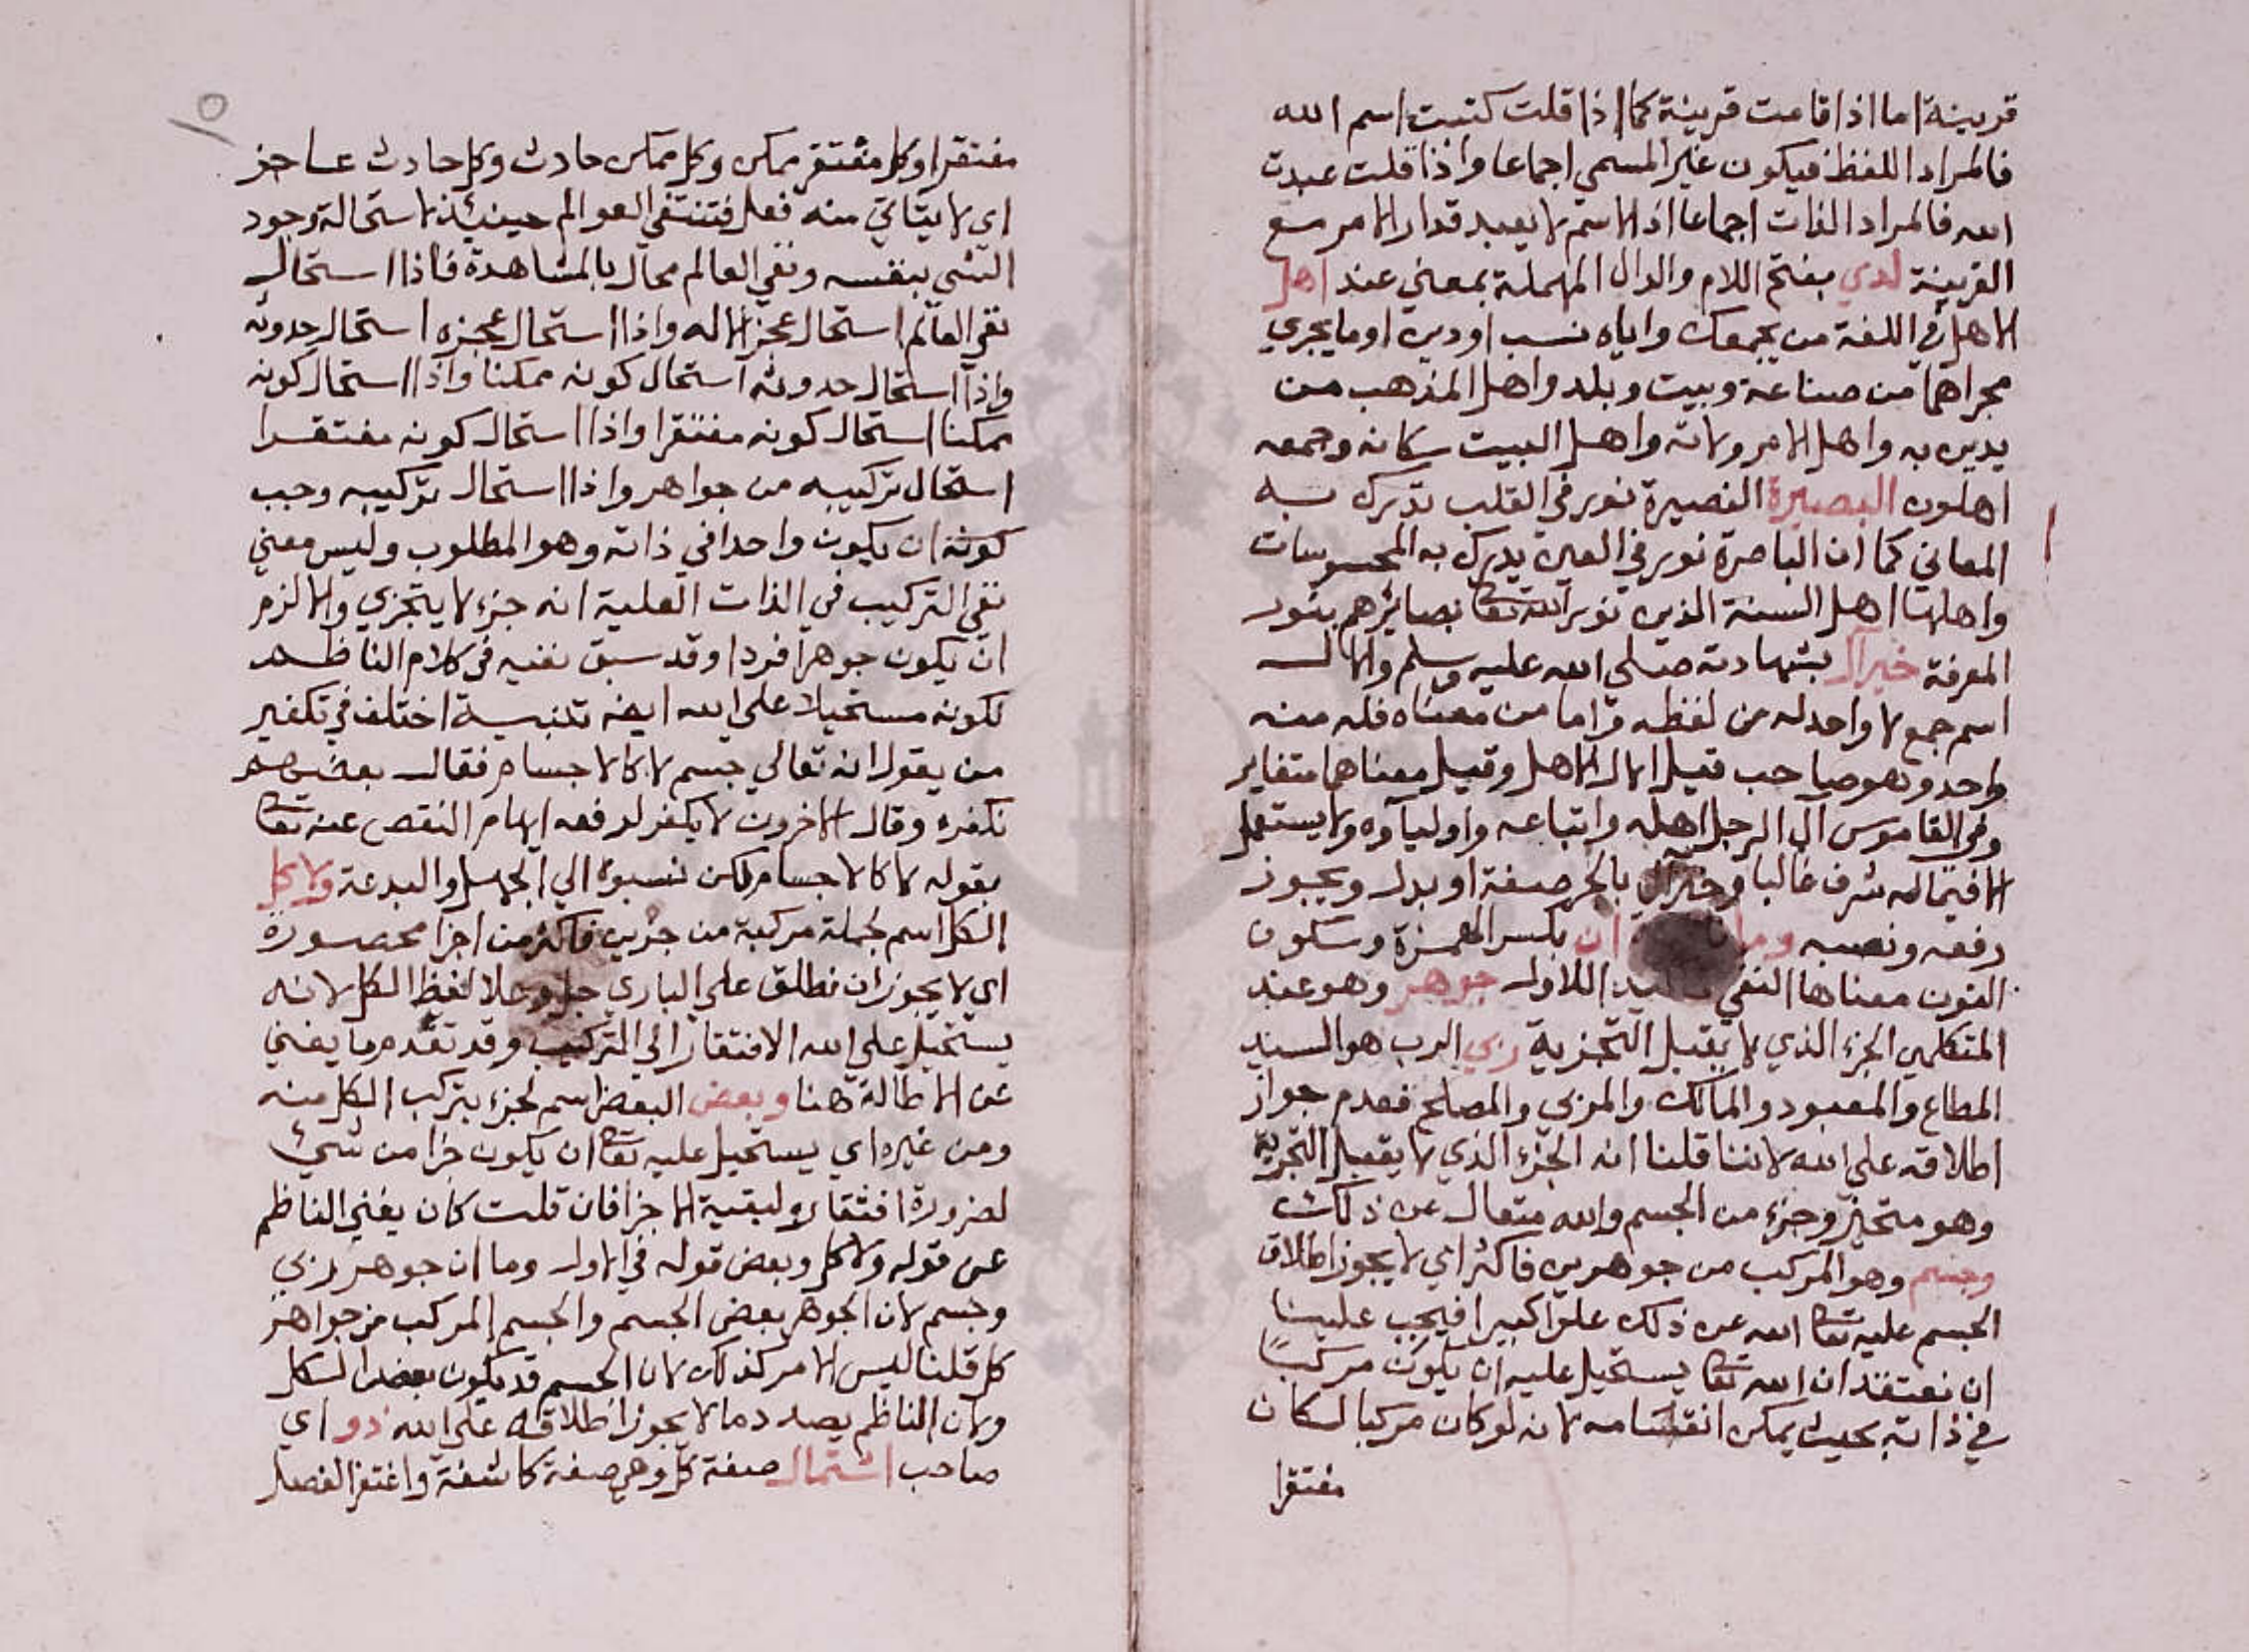 قرينة اما اذا قامت قرينة كما اذا قلت كتبت اسم الله
فالمراد اللفظ فيكون غير المسمي اجماعا واذا قلت عبدت
الله فالمراد الذات اجماعا اذ الاسم لا يعبد قد دار الامر مع
القرينة لدي بفتح اللام والدال المهملة بمعني عند اهل
الاهل في اللغة من يجمعك واياه نسب او دين او ما يجري
مجراهما من صناعة وبيت وبلد واهل المذهب من
يدين به واهل الامر ولاته واهل البيت سكانه وجمعه
اهلون البصيرة البصيرة نور في القلب تدرك به
المعاني كما ان الباصرة نور في العين يدرك به المحسوسات
واهلها اهل السنة الذين نور الله تعا بصائرهم بنور
المعرفة خير آل بشهادته صلي الله عليه وسلم والال
اسم جمع لا واحد له من لفظه واما من معناه فله منه
واحد وهو صاحب قيل الال الاهل وقيل معناهما متغاير
وفي القاموس آل الرجل اهله واتباعه واولياؤه ولا يستعمل
الا فيما له شرف غالبا وخير آل بالجر صفة او بدل ويجوز
رفعه ونصبه وما ان بكسر الهمزة وسكون
النون معناها النفي للاول جوهر وهو عند
المتكلمين الجزء الذي لا يقبل التجزية ربي الرب هو السيد
المطاع والمعبود والمالك والمربي والمصلح فعدم جواز
اطلاقه علي الله لاننا قلنا انه الجزء الذي لا يقبل التجزية
وهو متحيز وجزء من الجسم والله متعال عن ذلك
وجسم وهو المركب من جوهرين فاكثر اي لا يجوز اطلاق
الجسم عليه تعا الله عن ذلك علوا كبيرا فيجب علينا
ان نعتقد ان الله تعا يستحيل عليه ان يكون مركبا
في ذاته بحيث يمكن انقسامه لانه لو كان مركبا لكان
مفتقرا
٥
مفتقرا وكل مفتقر ممكن وكل ممكن حادث وكل حادث عاجز
اي لا يتاتي منه فعل فتنتفي العوالم حينئذ لاستحالة وجود
الشي بنفسه ونفي العالم محال بالمشاهدة فاذا استحال
نفي العالم استحال عجز الاله واذا استحال عجزه استحال حدوثه
واذا استحال حدوثه استحال كونه ممكنا واذا استحال كونه
ممكنا استحال كونه مفتقرا واذا استحال كونه مفتقرا
استحال تركيبه من جواهر واذا استحال تركيبه وجب
كونه ان يكون واحدا في ذاته وهو المطلوب وليس معني
نفي التركيب في الذات العلية انه جزء لا يتجزي والا لزم
ان يكون جوهرا فردا وقد سبق نفيه في كلام الناظم
لكونه مستحيلا علي الله ايضه تنبيه اختلف في تكفير
من يقول انه تعالي جسم لا كالاجسام فقال بعضهم
نكفره وقال الاخرون لا يكفر لدفعه ايهام النقص عنه تعا
بقوله لا كالاجسام لكن نسبوه الي الجهل والبدعة ولا كل
الكل اسم لجملة مركبة من جزين فاكثر من اجزا محصورة
اي لا يجوز ان نطلق علي الباري جل وعلا لفظ الكل لانه
يستحيل علي الله الافتقار الي التركيب وقد تقدم ما يغني
عن الاطالة هنا وبعض البعض اسم لجزء يتركب الكل منه
ومن غيره اي يستحيل عليه تعا ان يكون جزا من شيء
لضرورة افتقاره لبقية الاجزا فان قلت كان يغني الناظم
عن قوله ولا كل وبعض قوله في الاول وما ان جوهر ربي
وجسم لان الجوهر بعض الجسم والجسم المركب من جواهر
كل قلنا ليس الامر كذلك لان الجسم قد يكون بعض الكل
ولان الناظم بصدد ما لا يجوز اطلاقه علي الله ذو اي
صاحب اشتمال صفة كل وهي صفة كاشفة واغتفر الفصل